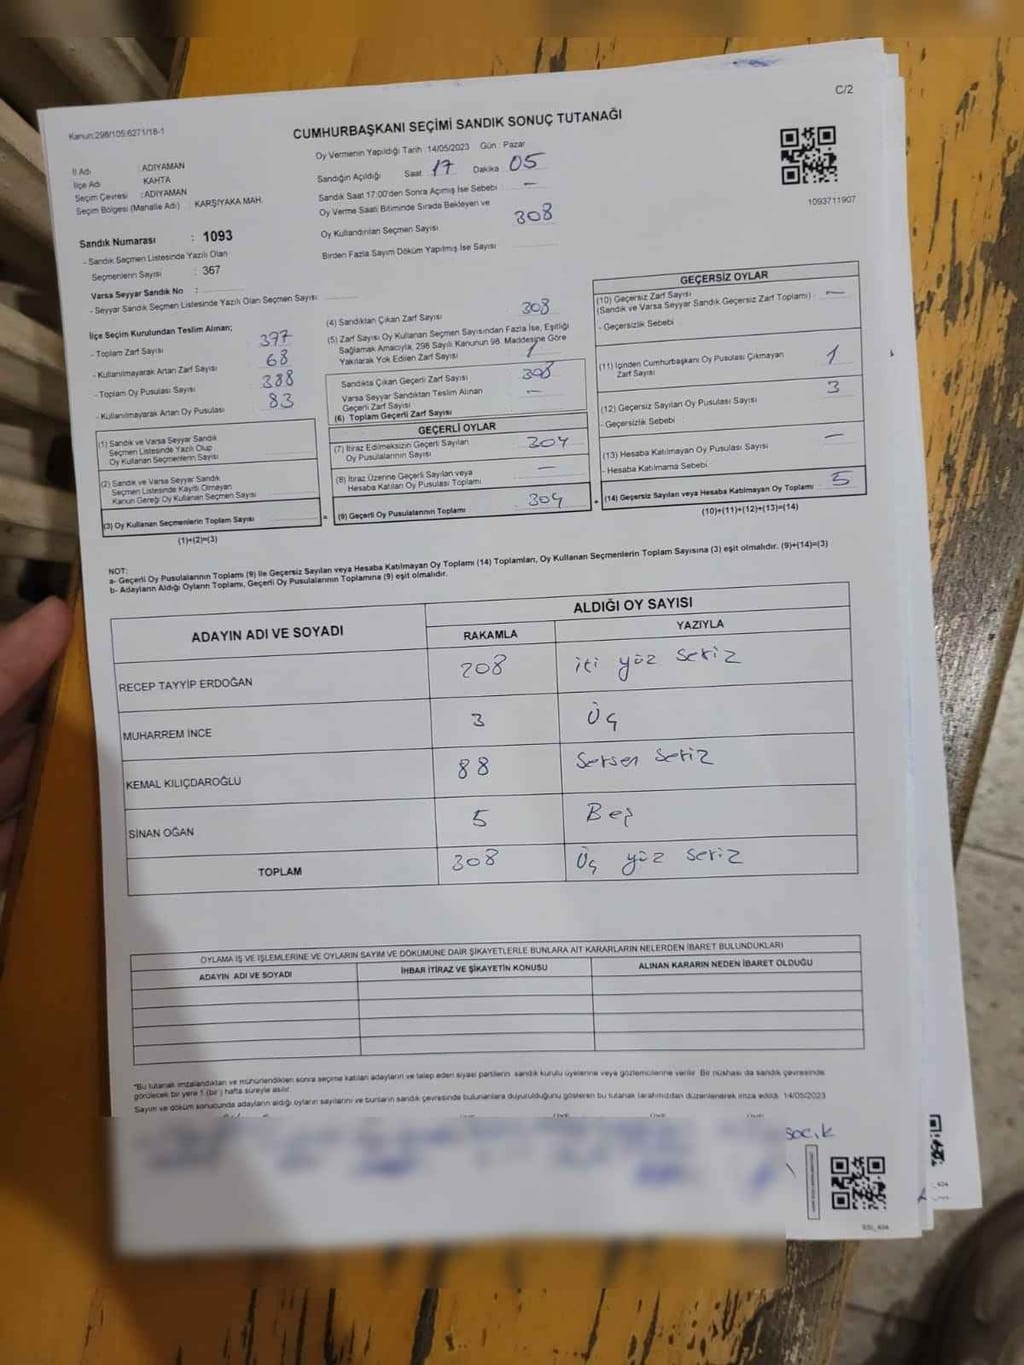 C/2
Kanun:298/105;6271/18-1
CUMHURBAŞKANI SEÇİMİ SANDIK SONUÇ TUTANAĞI
İl Adı : ADIYAMAN
İlçe Adı : KAHTA
Seçim Çevresi : ADIYAMAN
Seçim Bölgesi (Mahalle Adı) : KARŞIYAKA MAH.
Oy Vermenin Yapıldığı Tarih :14/05/2023 Gün : Pazar
Sandığın Açıldığı Saat 17 Dakika 05
Sandık Saat 17:00'den Sonra Açılmış İse Sebebi —
Oy Verme Saati Bitiminde Sırada Bekleyen ve
Oy Kullandırılan Seçmen Sayısı 308
Birden Fazla Sayım Döküm Yapılmış İse Sayısı
1093711907
Sandık Numarası : 1093
- Sandık Seçmen Listesinde Yazılı Olan
Seçmenlerin Sayısı : 367
Varsa Seyyar Sandık No :
- Seyyar Sandık Seçmen Listesinde Yazılı Olan Seçmen Sayısı
İlçe Seçim Kurulundan Teslim Alınan;
- Toplam Zarf Sayısı 377
- Kullanılmayarak Artan Zarf Sayısı 68
- Toplam Oy Pusulası Sayısı 388
- Kullanılmayarak Artan Oy Pusulası 83
(1) Sandık ve Varsa Seyyar Sandık
Seçmen Listesinde Yazılı Olup
Oy Kullanan Seçmenlerin Sayısı
(2) Sandık ve Varsa Seyyar Sandık
Seçmen Listesinde Kayıtlı Olmayan
Kanun Gereği Oy Kullanan Seçmen Sayısı
(3) Oy Kullanan Seçmenlerin Toplam Sayısı
(1)+(2)=(3)
(4) Sandıktan Çıkan Zarf Sayısı 308
(5) Zarf Sayısı Oy Kullanan Seçmen Sayısından Fazla İse, Eşitliği
Sağlamak Amacıyla, 298 Sayılı Kanunun 98. Maddesine Göre
Yakılarak Yok Edilen Zarf Sayısı
Sandıkta Çıkan Geçerli Zarf Sayısı 308
Varsa Seyyar Sandıktan Teslim Alınan
Geçerli Zarf Sayısı —
(6) Toplam Geçerli Zarf Sayısı
GEÇERLİ OYLAR
(7) İtiraz Edilmeksizin Geçerli Sayılan
Oy Pusulalarının Sayısı 304
(8) İtiraz Üzerine Geçerli Sayılan veya
Hesaba Katılan Oy Pusulası Toplamı —
(9) Geçerli Oy Pusulalarının Toplamı 304
GEÇERSİZ OYLAR
(10) Geçersiz Zarf Sayısı
(Sandık ve Varsa Seyyar Sandık Geçersiz Zarf Toplamı) —
- Geçersizlik Sebebi
(11) İçinden Cumhurbaşkanı Oy Pusulası Çıkmayan
Zarf Sayısı 1
(12) Geçersiz Sayılan Oy Pusulası Sayısı 3
- Geçersizlik Sebebi
(13) Hesaba Katılmayan Oy Pusulası Sayısı —
- Hesaba Katılmama Sebebi
(14) Geçersiz Sayılan veya Hesaba Katılmayan Oy Toplamı 5
(10)+(11)+(12)+(13)=(14)
NOT:
a- Geçerli Oy Pusulalarının Toplamı (9) ile Geçersiz Sayılan veya Hesaba Katılmayan Oy Toplamı (14) Toplamları, Oy Kullanan Seçmenlerin Toplam Sayısına (3) eşit olmalıdır. (9)+(14)=(3)
b- Adayların Aldığı Oyların Toplamı, Geçerli Oy Pusulalarının Toplamına (9) eşit olmalıdır.
ADAYIN ADI VE SOYADI
ALDIĞI OY SAYISI
RAKAMLA YAZIYLA
RECEP TAYYİP ERDOĞAN 208 iki yüz sekiz
MUHARREM İNCE 3 Üç
KEMAL KILIÇDAROĞLU 88 Seksen Sekiz
SİNAN OĞAN 5 Beş
TOPLAM 308 Üç yüz sekiz
OYLAMA İŞ VE İŞLEMLERİNE VE OYLARIN SAYIM VE DÖKÜMÜNE DAİR ŞİKAYETLERLE BUNLARA AİT KARARLARIN NELERDEN İBARET BULUNDUKLARI
ADAYIN ADI VE SOYADI İHBAR İTİRAZ VE ŞİKAYETİN KONUSU ALINAN KARARIN NEDEN İBARET OLDUĞU
*Bu tutanak imzalandıktan ve mühürlendikten sonra seçime katılan adayların ve talep eden siyasi partilerin sandık kurulu üyelerine veya gözlemcilerine verilir. Bir nüshası da sandık çevresinde
görülecek bir yere 1 (bir) hafta süreyle asılır.
Sayım ve döküm sonucunda adayların aldığı oyların sayılarını ve bunların sandık çevresinde bulunanlara duyurulduğunu gösteren bu tutanak tarafımızdan düzenlenerek imza edildi. 14/05/2023